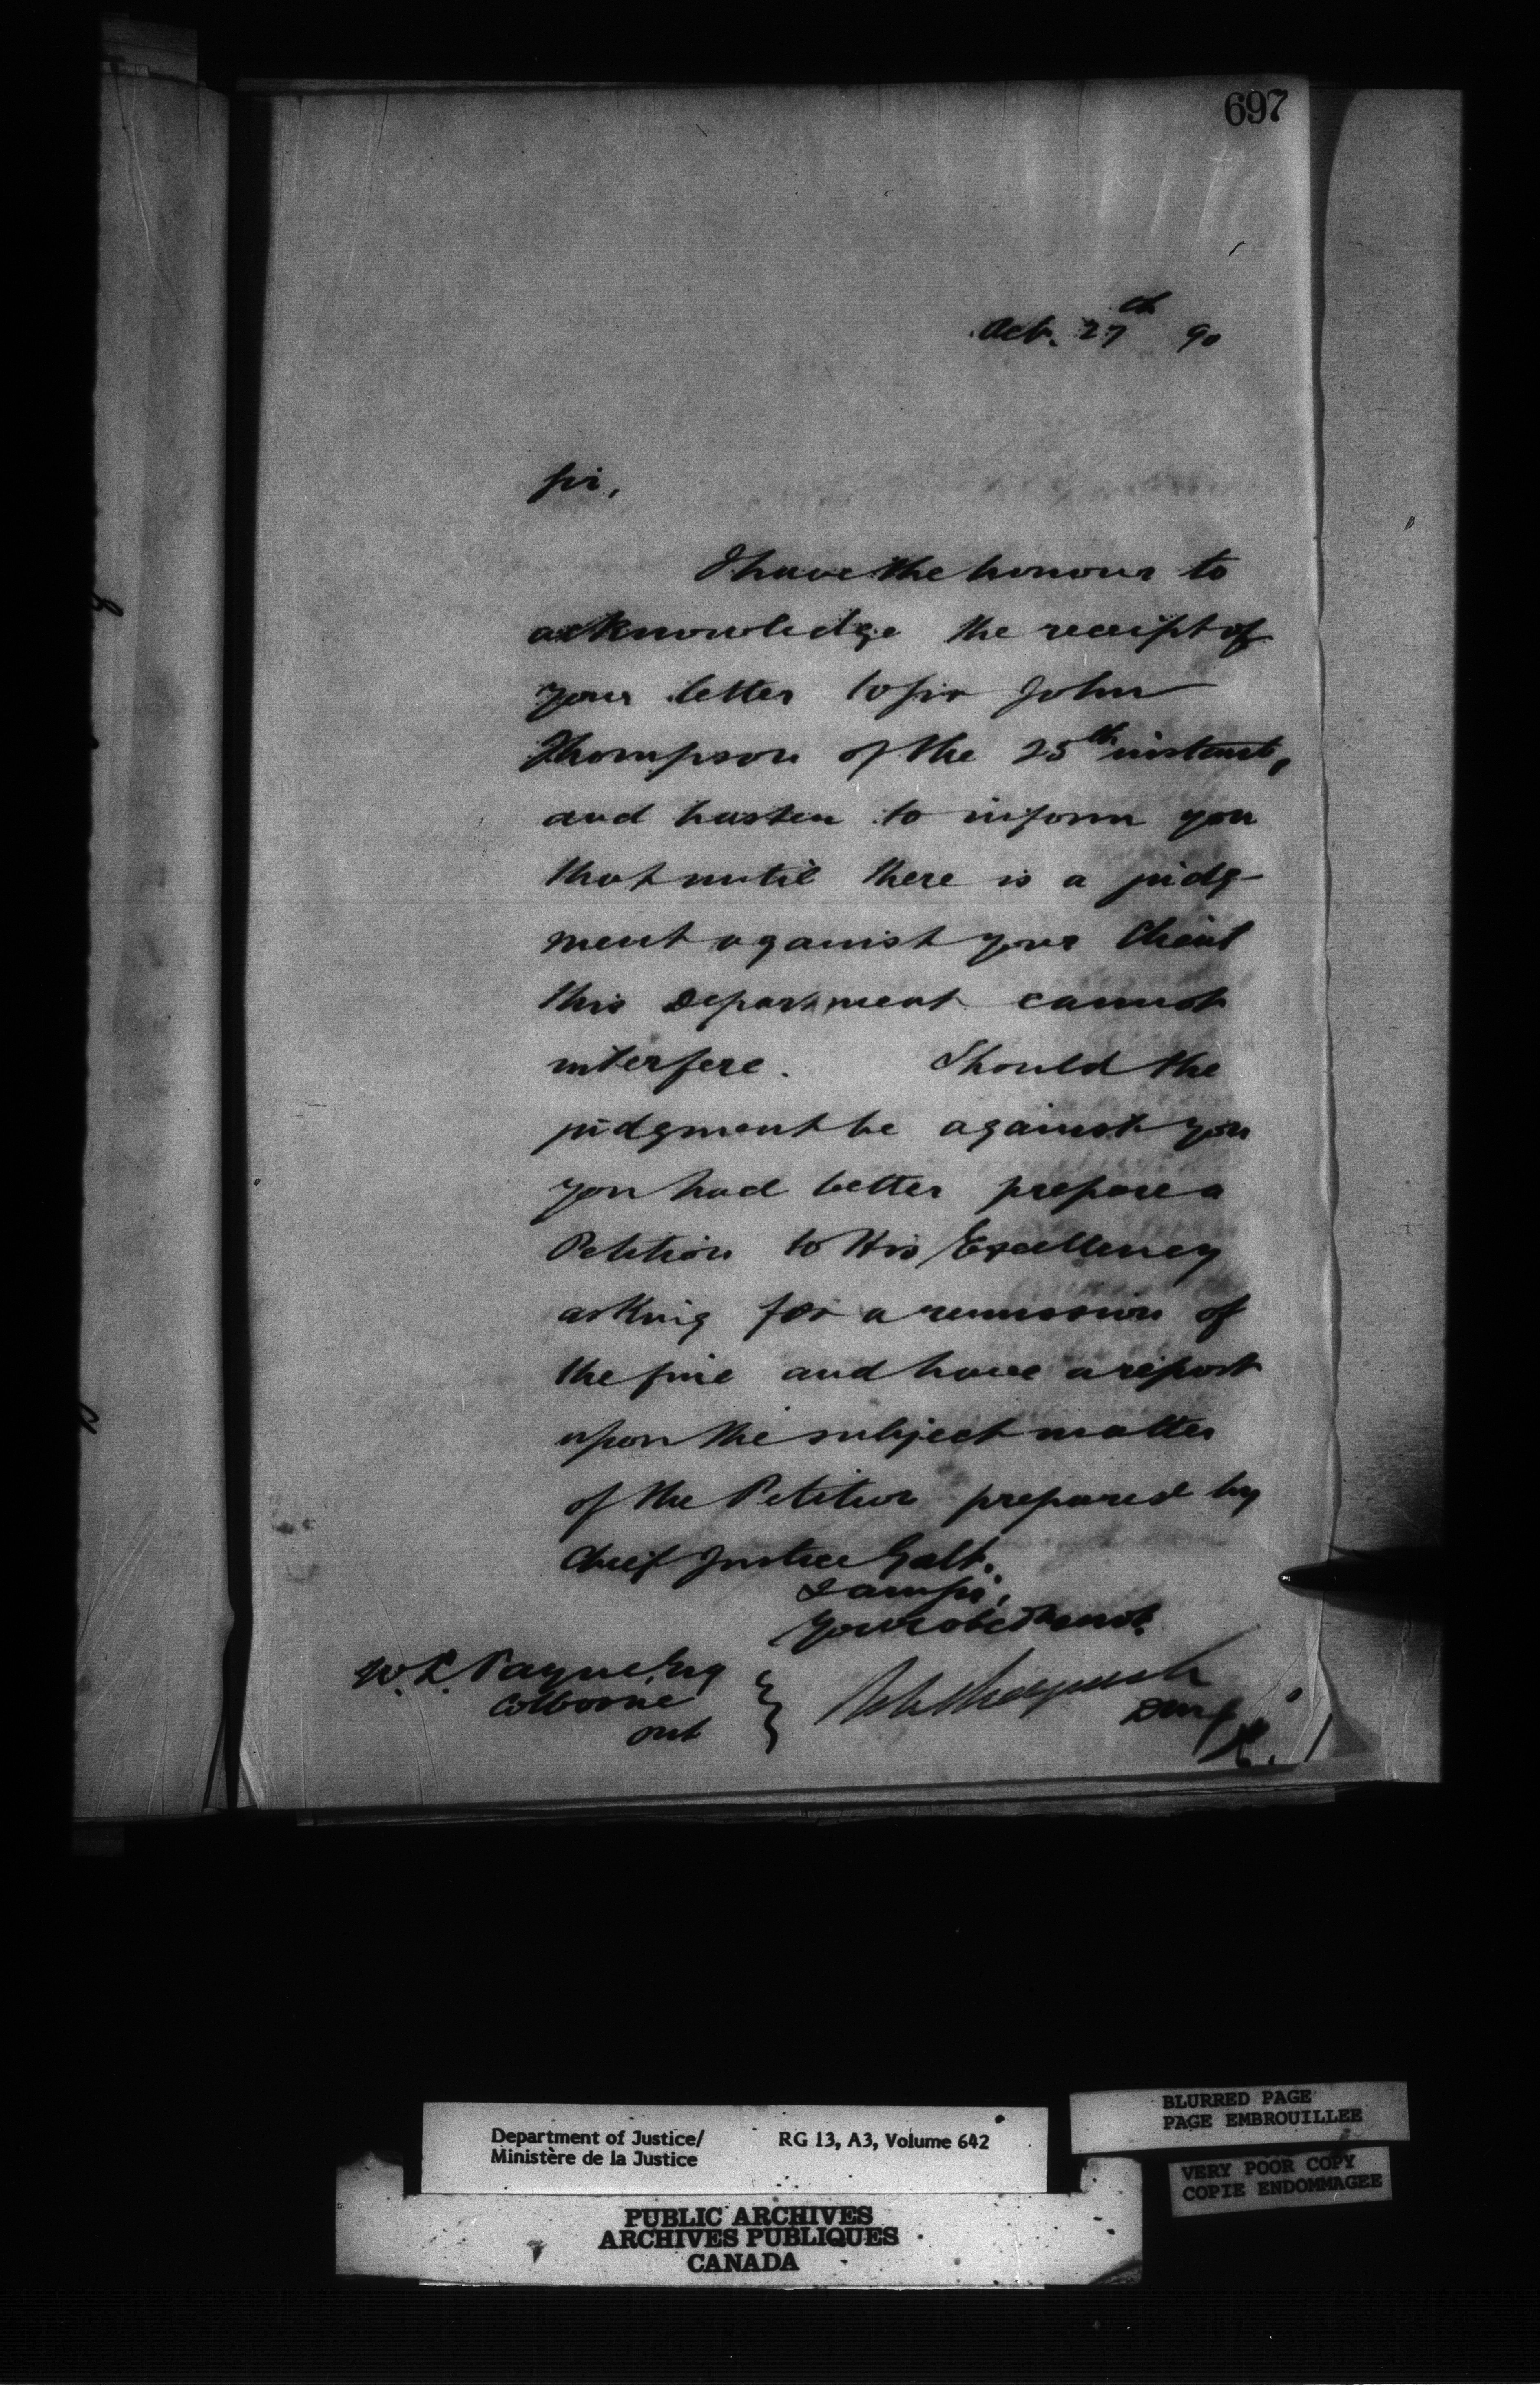 697
Oct. 27th 90
Sir,
I have the honour to
acknowledge the receipt of
your letter to Sir John
Thompson of the 25th instant,
and hasten to inform you
that until there is a judg-
ment against your Client
this Department cannot
interfere. Should the
judgment be against you
you had better prepare a
Petition to His Excellency
asking for a remission of
the fine and have a report
upon the subject matter
of the Petition prepared by
Chief Justice Galt.
I am Sir,
Your obedt servt.
W. L. Payne Esq
Colborne
Ont
Department of Justice/ RG 13, A3, Volume 642
Ministère de la Justice
PUBLIC ARCHIVES
ARCHIVES PUBLIQUES
CANADA
BLURRED PAGE
PAGE EMBROUILLEE
VERY POOR COPY
COPIE ENDOMMAGEE